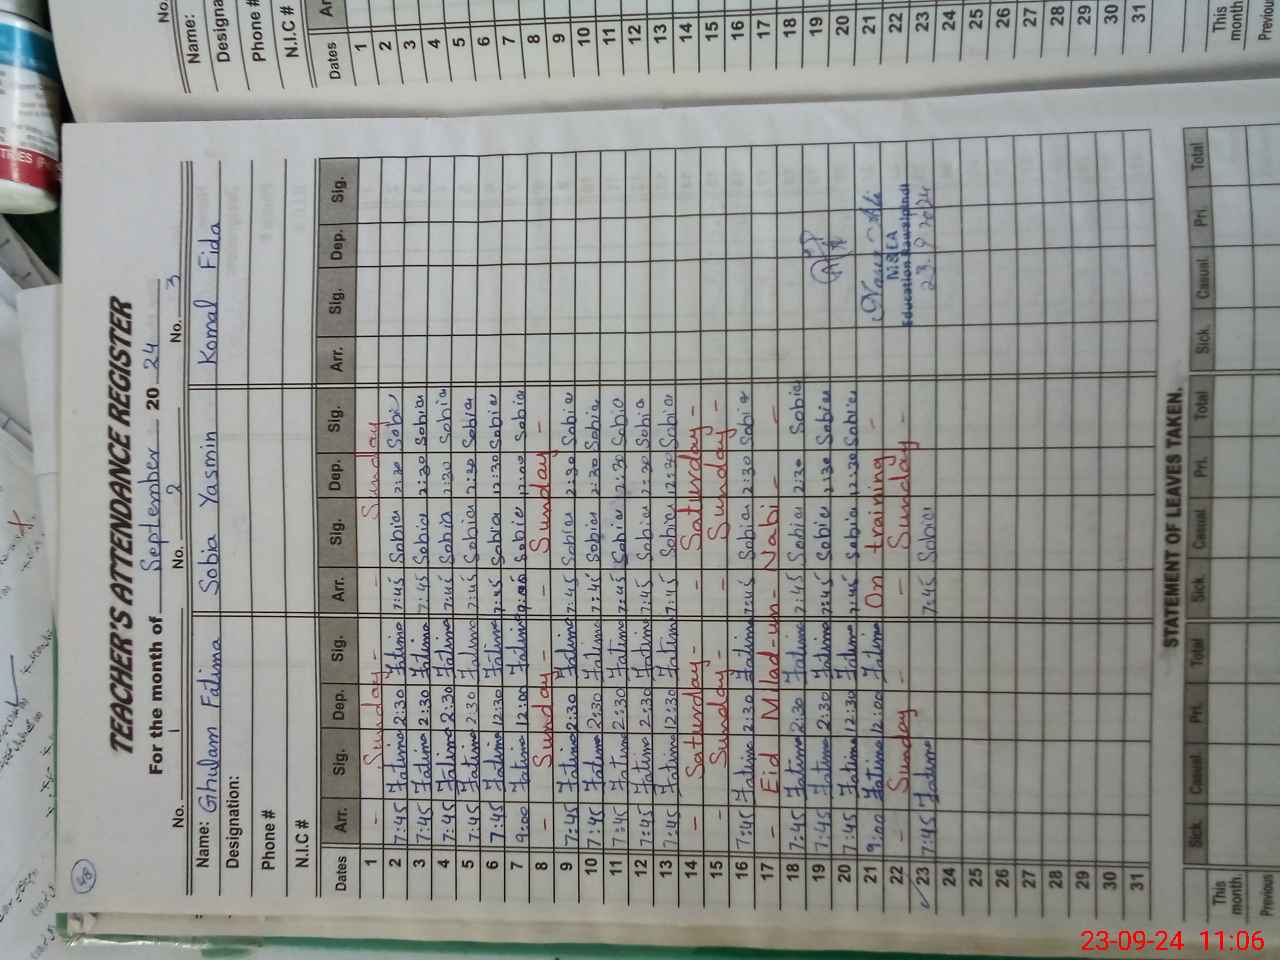 TEACHER'S ATTENDANCE REGISTER
For the month of September 20 24
No. 1 No. 2 No. 3
Name: Ghulam Fatima Sobia Yasmin Komal Fida
Designation:
Phone #
N.I.C #
Dates Arr. Sig. Dep. Sig. Arr. Sig. Dep. Sig. Arr. Sig. Dep. Sig.
1 - Sunday - - Sunday
2 7:45 Fatima 2:30 Fatima 7:45 Sobia 2:30 Sobia
3 7:45 Fatima 2:30 Fatima 7:45 Sobia 2:30 Sobia
4 7:45 Fatima 2:30 Fatima 7:45 Sobia 2:30 Sobia
5 7:45 Fatima 2:30 Fatima 7:45 Sobia 2:30 Sobia
6 7:45 Fatima 12:30 Fatima 7:45 Sobia 12:30 Sobia
7 9:00 Fatima 12:00 Fatima 9:00 Sobia 12:00 Sobia
8 - Sunday - - Sunday -
9 7:45 Fatima 2:30 Fatima 7:45 Sobia 2:30 Sobia
10 7:45 Fatima 2:30 Fatima 7:45 Sobia 2:30 Sobia
11 7:45 Fatima 2:30 Fatima 7:45 Sobia 2:30 Sobia
12 7:45 Fatima 2:30 Fatima 7:45 Sobia 2:30 Sobia
13 7:45 Fatima 12:30 Fatima 7:45 Sobia 12:30 Sobia
14 - Saturday - - Saturday -
15 - Sunday - - Sunday -
16 7:45 Fatima 2:30 Fatima 7:45 Sobia 2:30 Sobia
17 - Eid Milad-un-Nabi - -
18 7:45 Fatima 2:30 Fatima 7:45 Sobia 2:30 Sobia
19 7:45 Fatima 2:30 Fatima 7:45 Sobia 2:30 Sobia
20 7:45 Fatima 12:30 Fatima 7:45 Sobia 12:30 Sobia
21 9:00 Fatima 12:00 Fatima On training -
22 - Sunday - - Sunday - MEA
Education Rawalpindi
23 7:45 Fatima 7:45 Sobia 23.9.2024
24
25
26
27
28
29
30
31
STATEMENT OF LEAVES TAKEN.
Sick. Casual. Pri. Total Sick. Casual Pri. Total Sick. Casual Pri. Total
This month.
Previous
No.
Name:
Designa
Phone #
N.I.C #
Dates Ar
1
2
3
4
5
6
7
8
9
10
11
12
13
14
15
16
17
18
19
20
21
22
23
24
25
26
27
28
29
30
31
This month
Previous
23-09-24 11:06